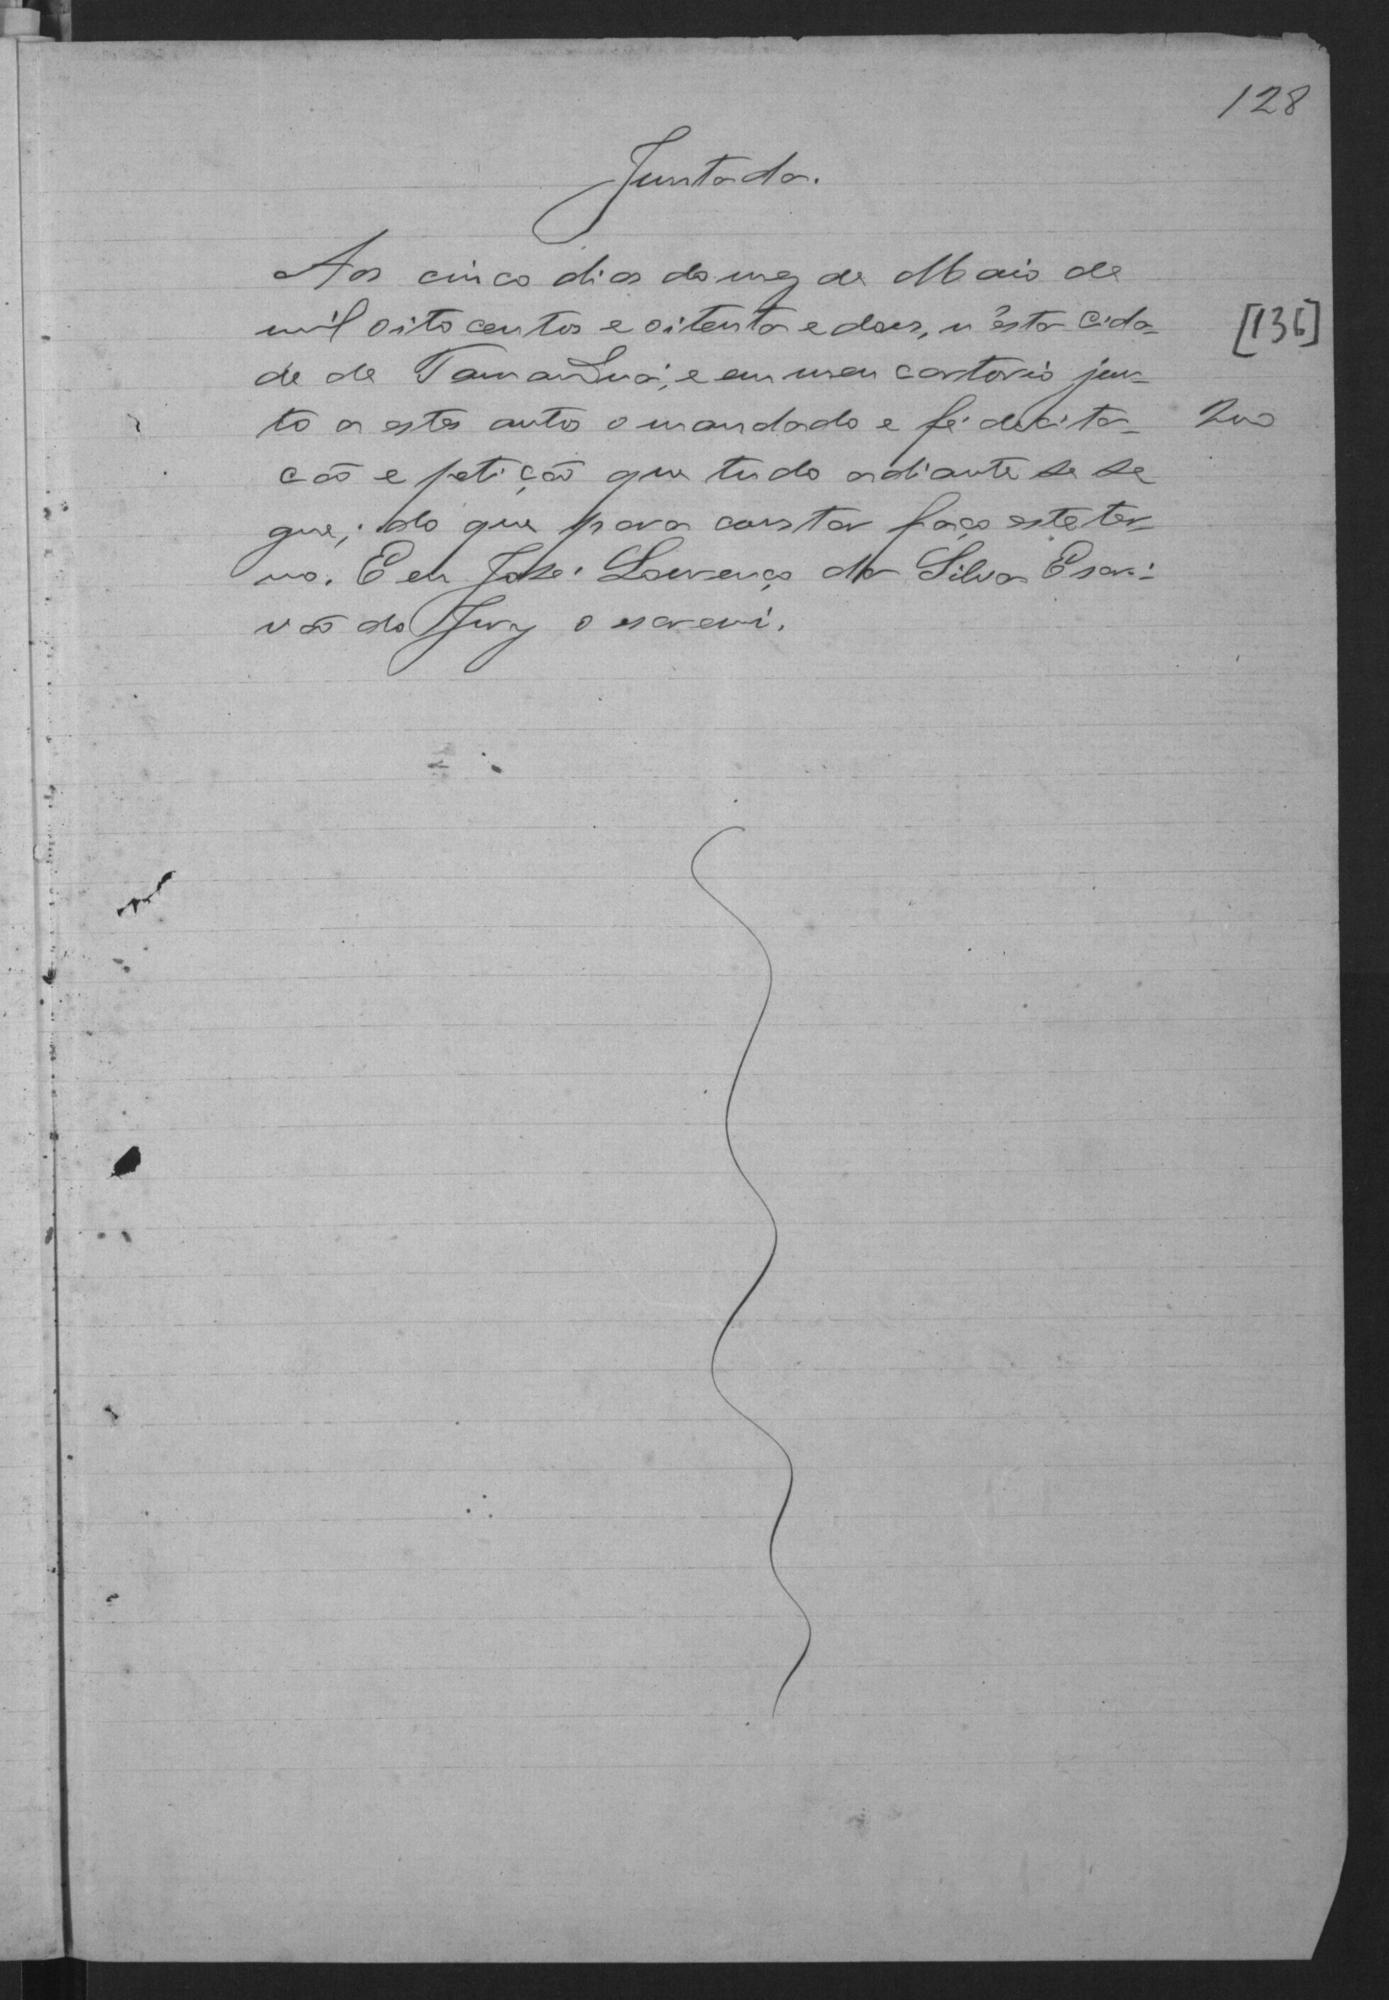 128
Juntada.
Aos cinco dias do mez de Maio de
mil oito centos e oitenta e dous, n'esta cida-
de de Tamanduá, e em meu cartorio jun-
to a estes autos o mandado e fé de cita-
cão e petição que tudo adiante se se
gue; do que para constar faço este ter-
mo. E eu José Lourenço da Silva Escri-
vão do Jury o escrevi.
[136]
200